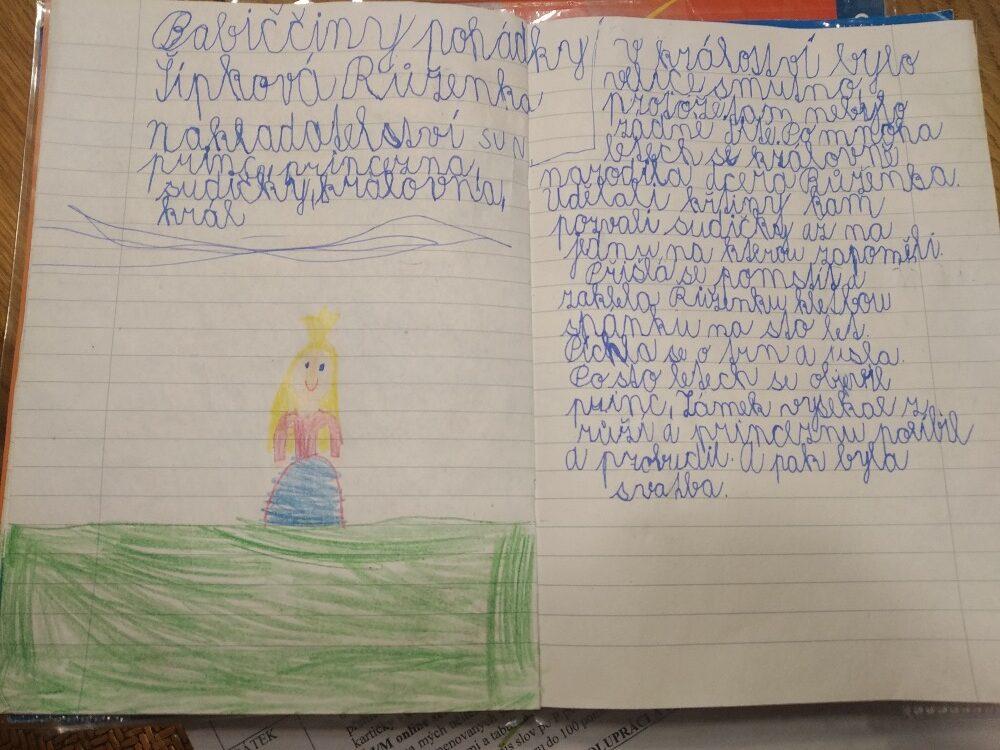 Babiččiny pohádky
Šípková Růženka
nakladatelství SUN
princ, princezna,
sudičky, královna,
král
V království bylo
velice smutno,
protože tam nebylo
žádné dítě. Po mnoha
letech se královně
narodila dcera Růženka.
Udělali křtiny kam
pozvali sudičky až na
jednu, na kterou zapoměli.
Přišla se pomstít a
zaklela Růženku kletbou
spánku na sto let.
Píchla se o trn a usla.
Po sto letech se objevil
princ, Zámek vysekal z
růží a princeznu políbil
a probudil. A pak byla
svatba.
ÁTEK
kartičk
UM online